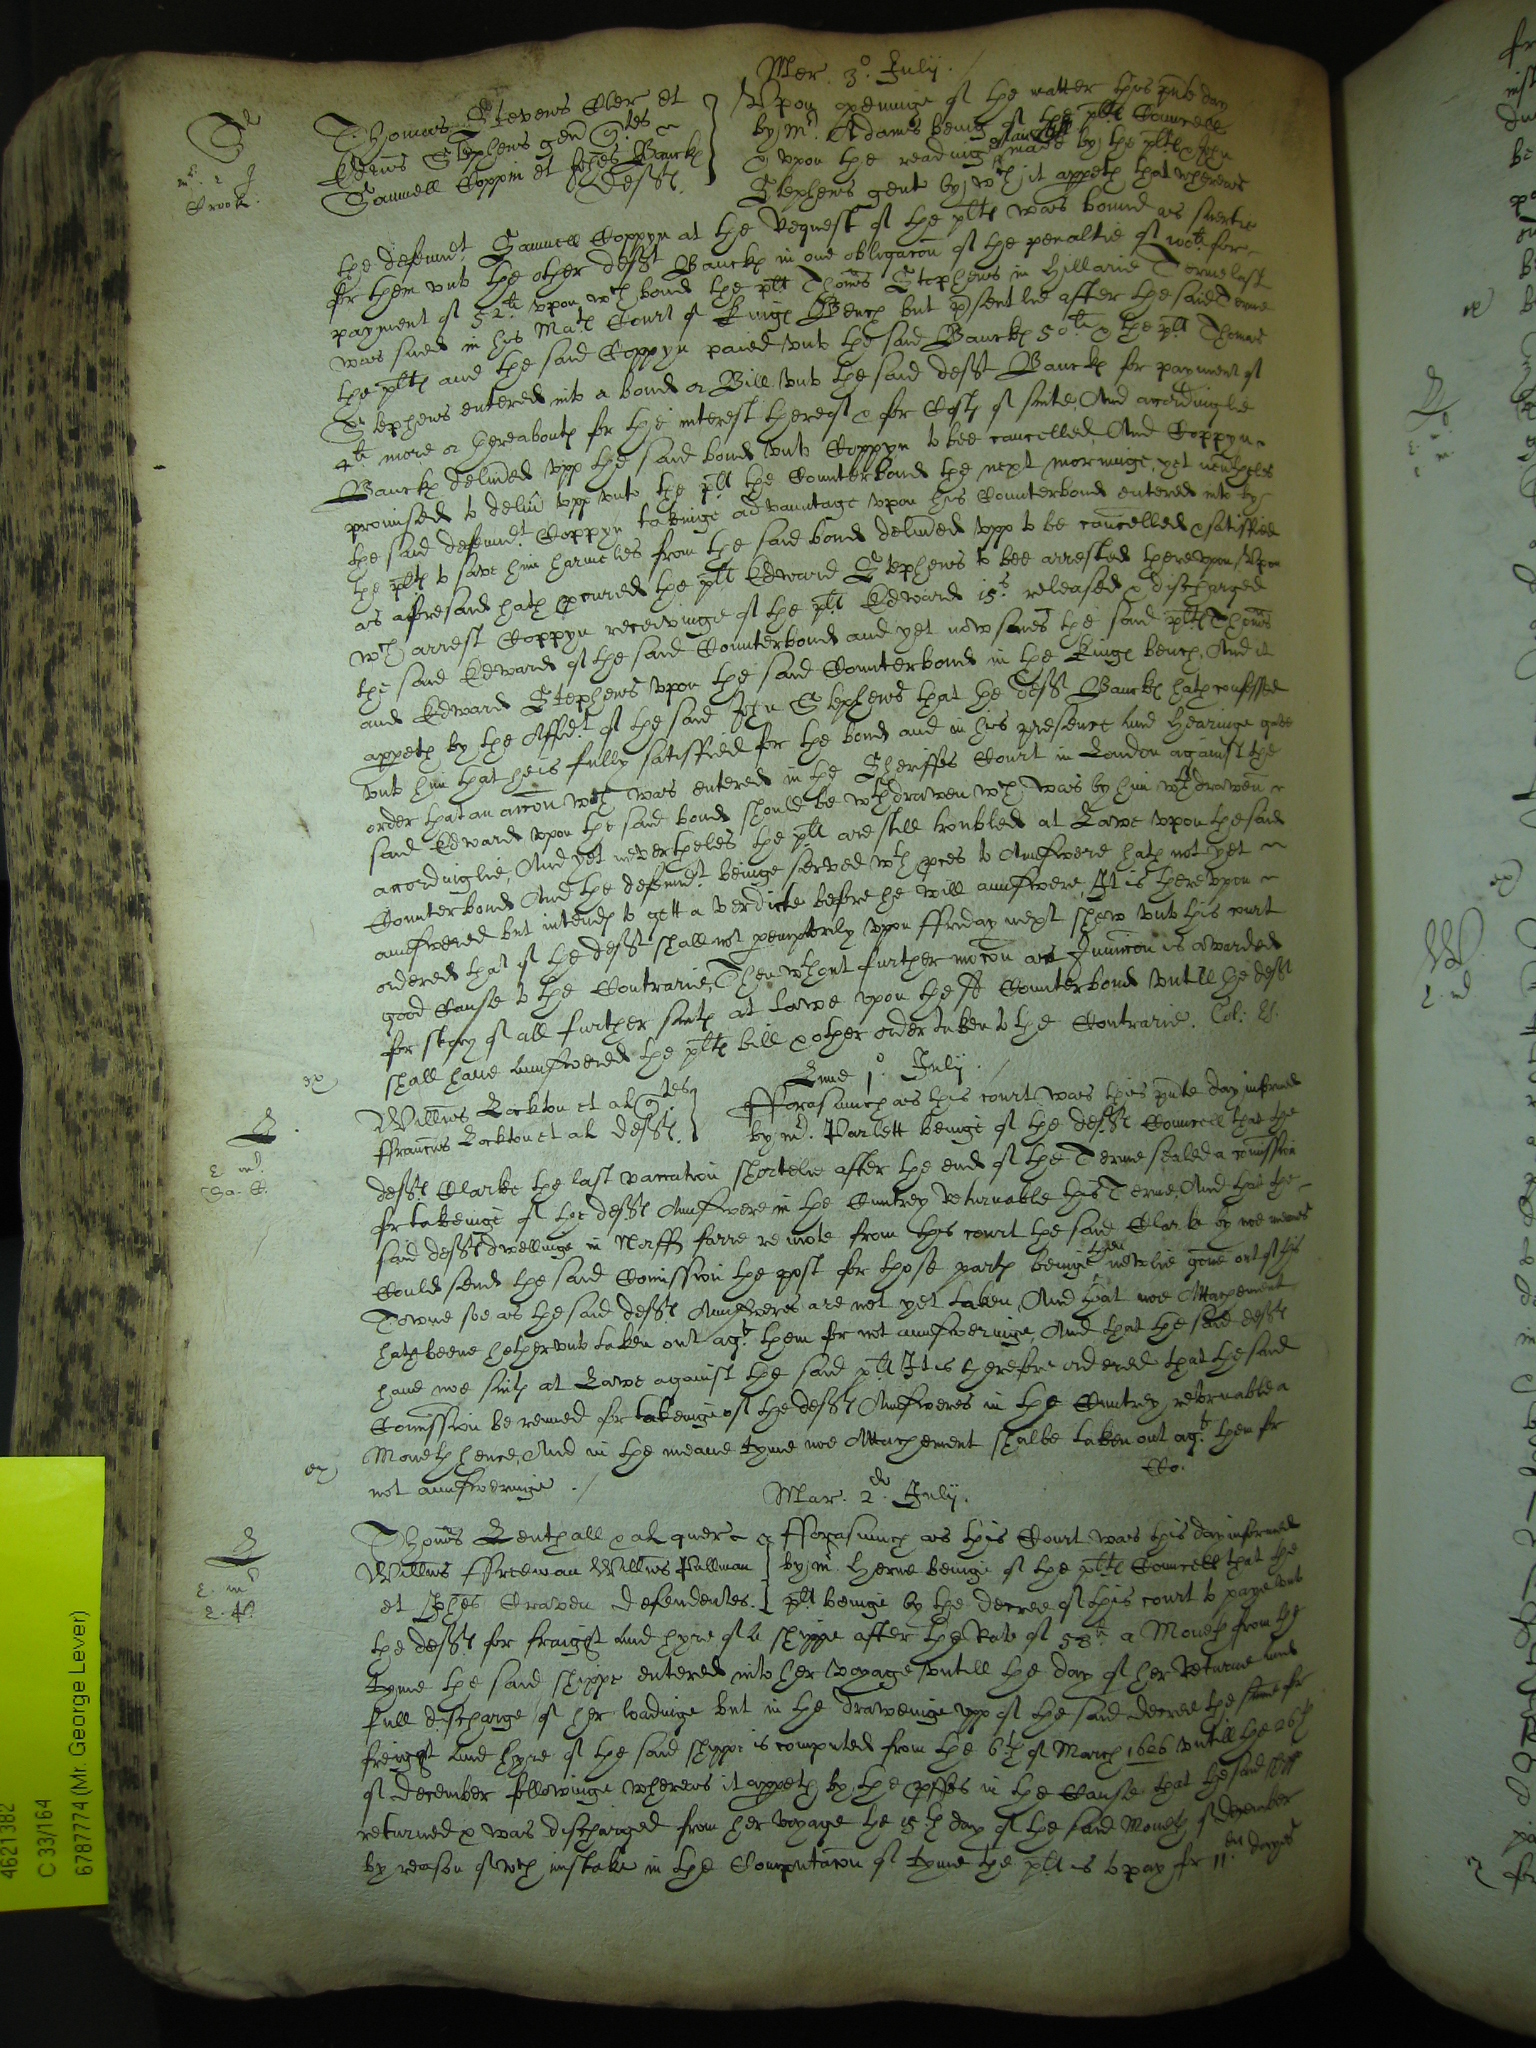 Mer. 3o. Julij.
Thomas Stevens Cler et
Edrus Stephens gen quer
Samuell Coppin et Banck
Defts.
Upon openinge of the matter this pnte day
by Mr. Adams being of the plts Councell
& upon the reading of an affdt made by the plts John
Stephens gent by wch it appeth that whereas
the defendt. Samuell Coppyn at the Request of the plts was bound as suertie
for them unto the other deft Banck in one obligacon of the penaltie of 100li. for
payment of 52li. upon wch bond the plt Thoms Stephens in Hillarie Terme last
was sued in his Mats Court of Kings Bench but psentlie after the said Terme
the plts and the said Coppyn paied unto the said Banck 50li & the plt Thomas
Stephens entered into a bond or Bill unto the said deft Banck for payment of
4li more or thereabouts for the interest thereof & for Costs of suite, And accordinglie
Banck delived upp the said bond unto Coppyn to bee cancelled, And Coppyn
promised to deliv upp unto the plt the Counterbond the next morninge, yet nevtheles
the said defendt. Coppyn takeinge advauntage upon his Counterbond entered into by
the plts to save him harmeles from the said bond delived upp to be cancelled & satisfied
as aforesaid hath pcured the plt Edward Stephens to bee arrested thereupon, Upon
wch arrest Coppyn receivinge of the plt Edward 15s. released & discharged
the said Edward of the said Counterbond and yet now sues the said plts Thoms
and Edward Stephens upon the said Counterbond in the Kings bench, And it
appeth by the Affidt of the said John Stephens that the deft Banck hath confessed
unto him that he is fully satisfied for the bond and in his presence and Hearinge gave
order that an accon wch was entered in the Sheriffes Court in London against the
said Edward upon the said bond should be wthdrawen wch was by him wthdrawen
accordinglie, And yet nevertheles the plts are still troubled at Lawe upon the said
Counterbond And the defendt. beinge served wth pces to Answere hath not yet
answered but intends to gett a verdicte before he will answere, It is thereupon
ordered that if the deft shall not peremptorily upon ffriday next shew unto this court
good Cause to the Contrarie, Then wthout further mocon an Iniunccon is awarded
for stay of all further suits at Lawe upon the sd Counterbond untill the deft
shall have Answered the plts bill & other order taken to the Contrarie.
Lune 1o. Julij.
Willms Lockton et al quer
ffranciscus Lockton et al Defts.
Fforasmuch as this court was this pnte day informed
by Mr. Parlett beinge of the defts Councell that the
defts Clarke the last vaccation shortelie after the end of the Terme sealed a comission
for takeinge of the defts Answere in the Cuntrey returnable this Terme, And that the
said defts dwellinge in Norff farre remote from this court the said Clarke by noe meanes
Could send the said Comission the post for those parts beinge then newlie gone out of this
Towne soe as the said defts Answeres are not yet taken, And that noe Attachement
hath beene hetherunto taken out agt. them for not answeringe, And that the said defts
have noe suits at Lawe against the said plt It is therefore ordered that the said
Comission be renued for takeinge of the defts Answeres in the Cuntrey returnable a
Moneth hence, And in the meane tyme noe Attachement shalbe taken out agt. them for
not answeringe.
Mar. 2do. Julij.
Thoms Lenthall & al quer
Willms ffreeman Willms Pullman
et Craven Defendentes.
Fforasmuch as this Court was this day informed
by Mr Herne beinge of the plts Councell that the
plt beinge by the decree of this court to paye unto
the defts for fraight and hyre of a shippe after the Rate of 58li a Moneth from the
tyme the said shippe entered into her voyage untill the day of her Returne and
full discharge of her loadinge but in the draweinge upp of the said Decree the same for
freight and hyre of the said shippe is computed from the 6th of March 1626 untill the 26th
of December followinge whereas it appeth by the pffes in the Cause that the said shipp
returned & was discharged from her voyage the 15th day of the said Moneth of December
by reason of wch mistake in the Computacon of tyme the plt is to pay for 11en. dayes
4621382
C 33/164
6787774 (Mr. George Lever)